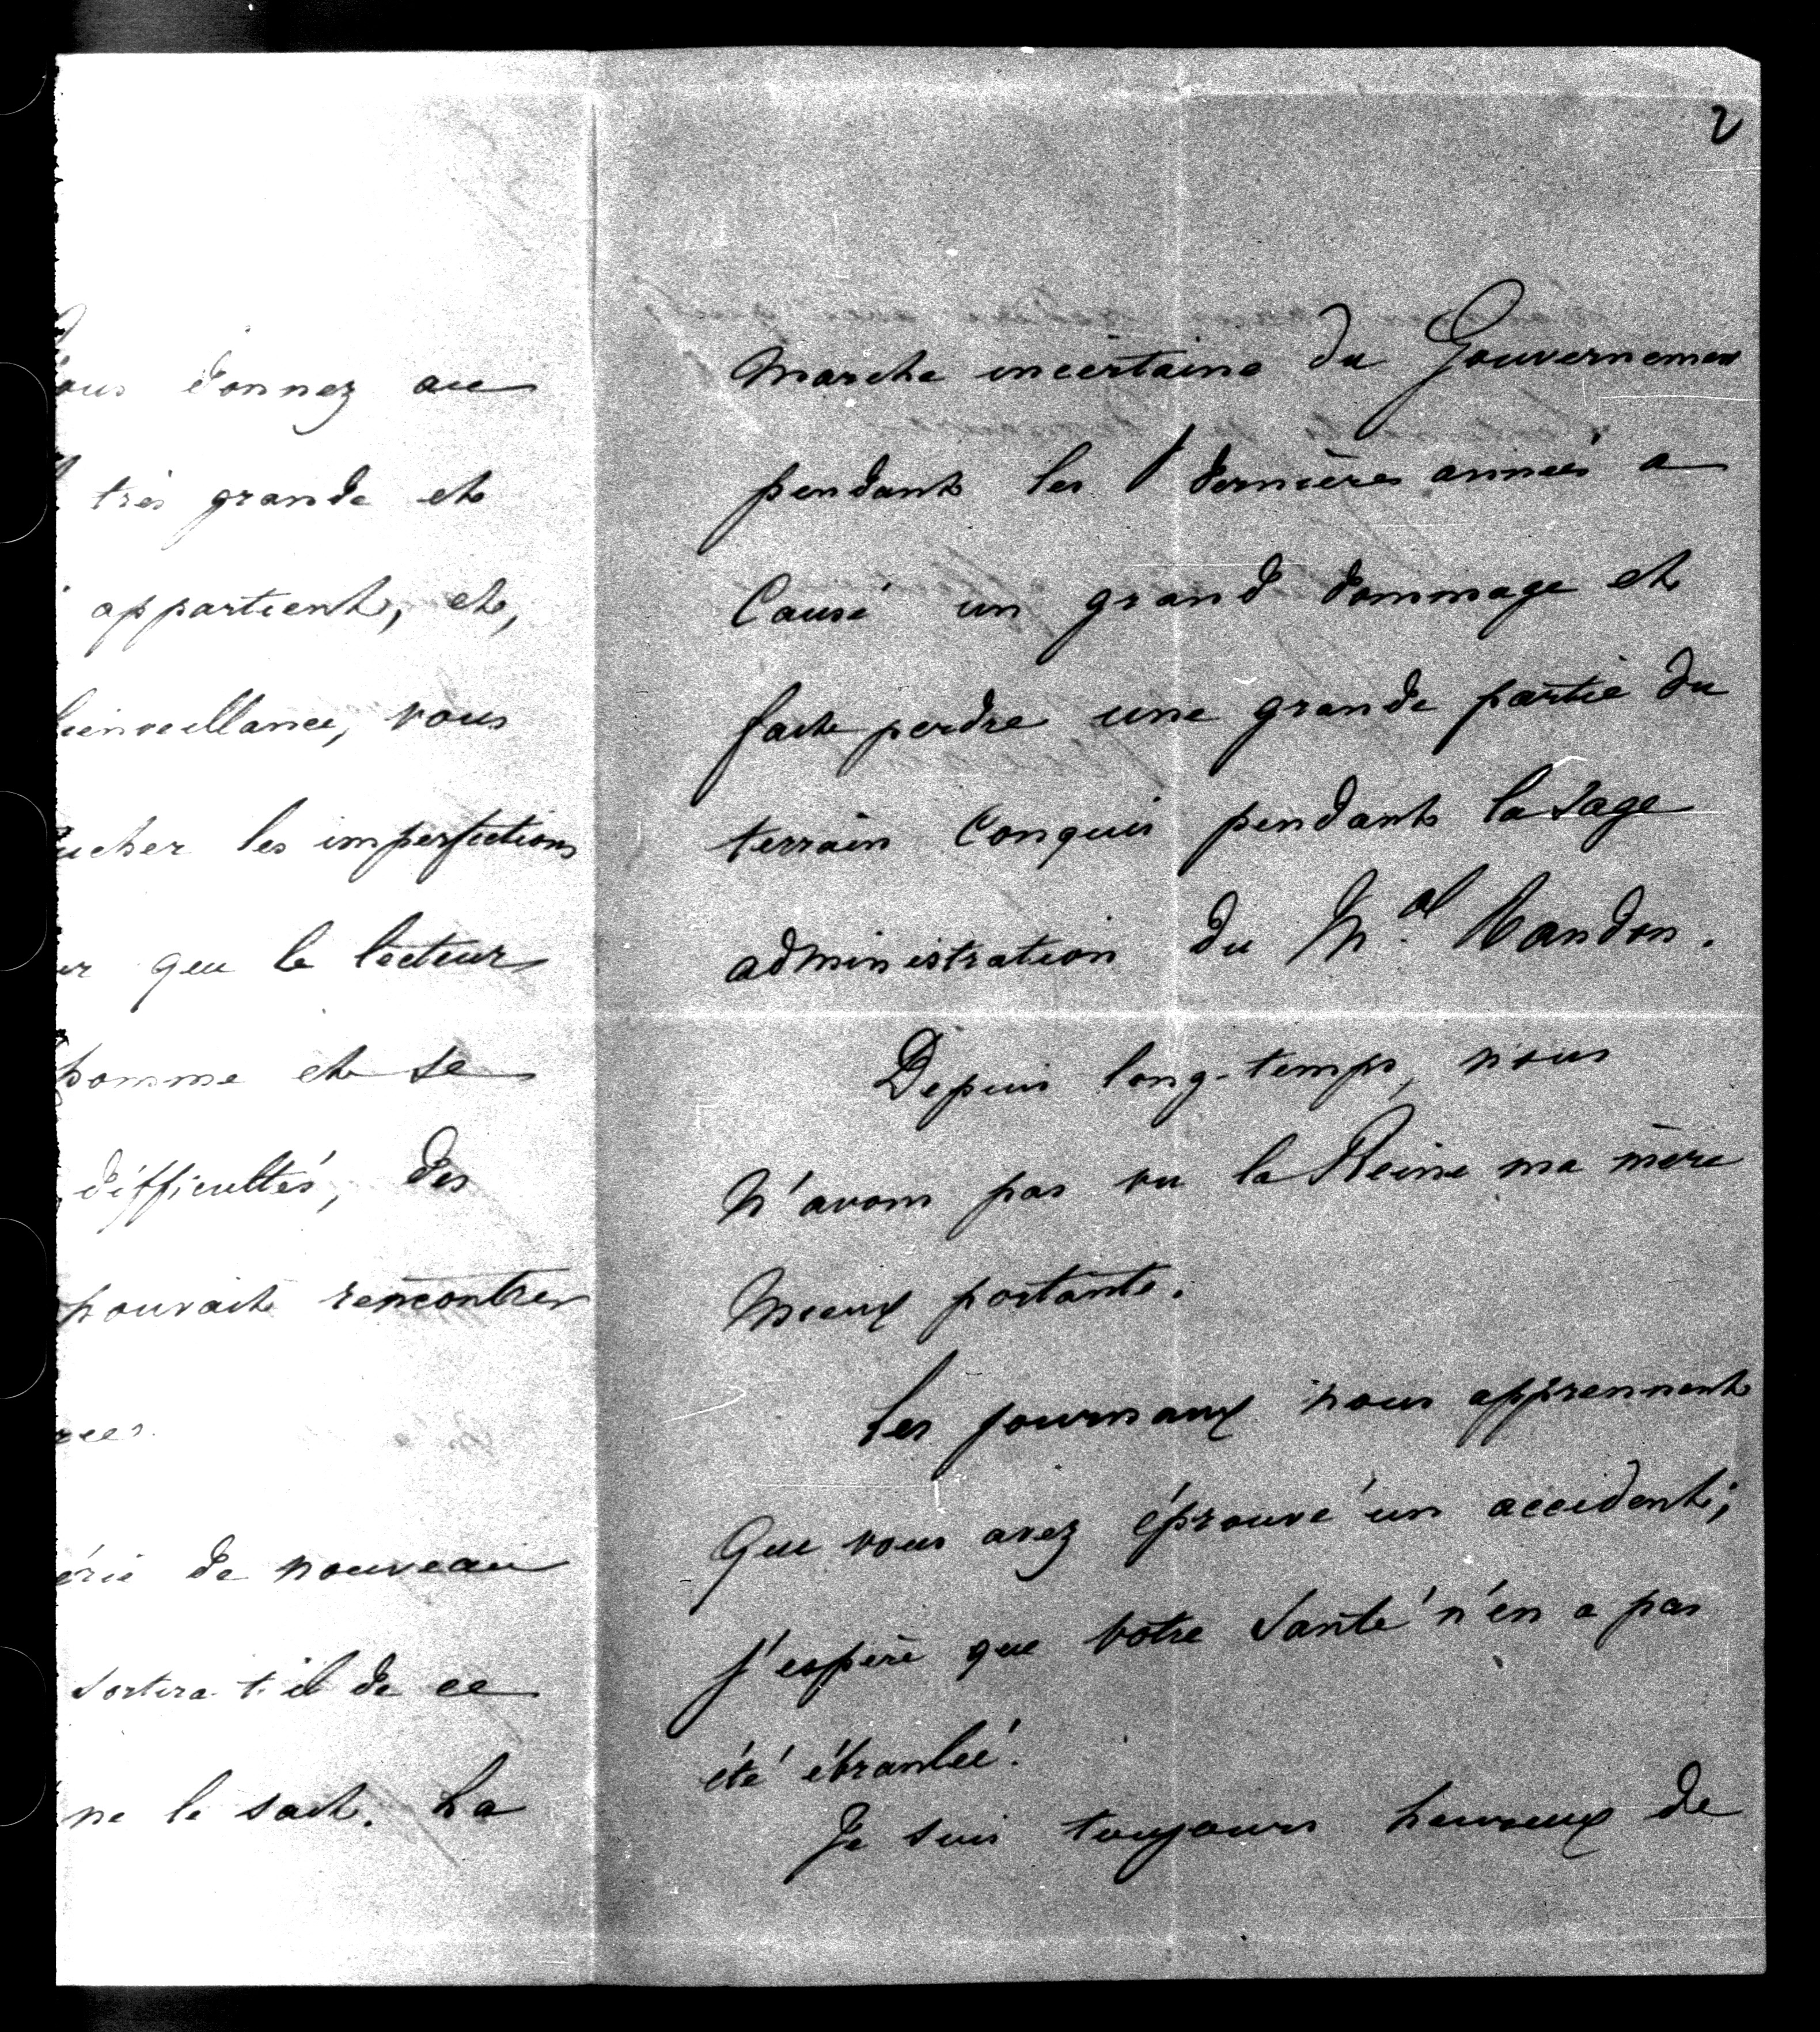 ous donnez au
très grande et
appartient, et,
bienveillance, vous
ucher les imperfections
er que le lecteur
homme et se
difficultés, des
pouvait rencontrer
rées.
érie de nouveau
sortira-t-il de ce
ne le sait. La
2
marche incertaine du Gouvernement
pendant les dernières années a
Causé un grand dommage et
fait perdre une grande partie du
terrain Conquis pendant la sage
administration du M.al Randon.
Depuis long-temps, nous
N'avons pas vu la Reine ma mère
Mieux portante.
Les journaux nous apprennent
Que vous avez éprouvé un accident;
j'espère que votre Santé n'en a pas
été ébranlée.
Je suis toujours heureux de